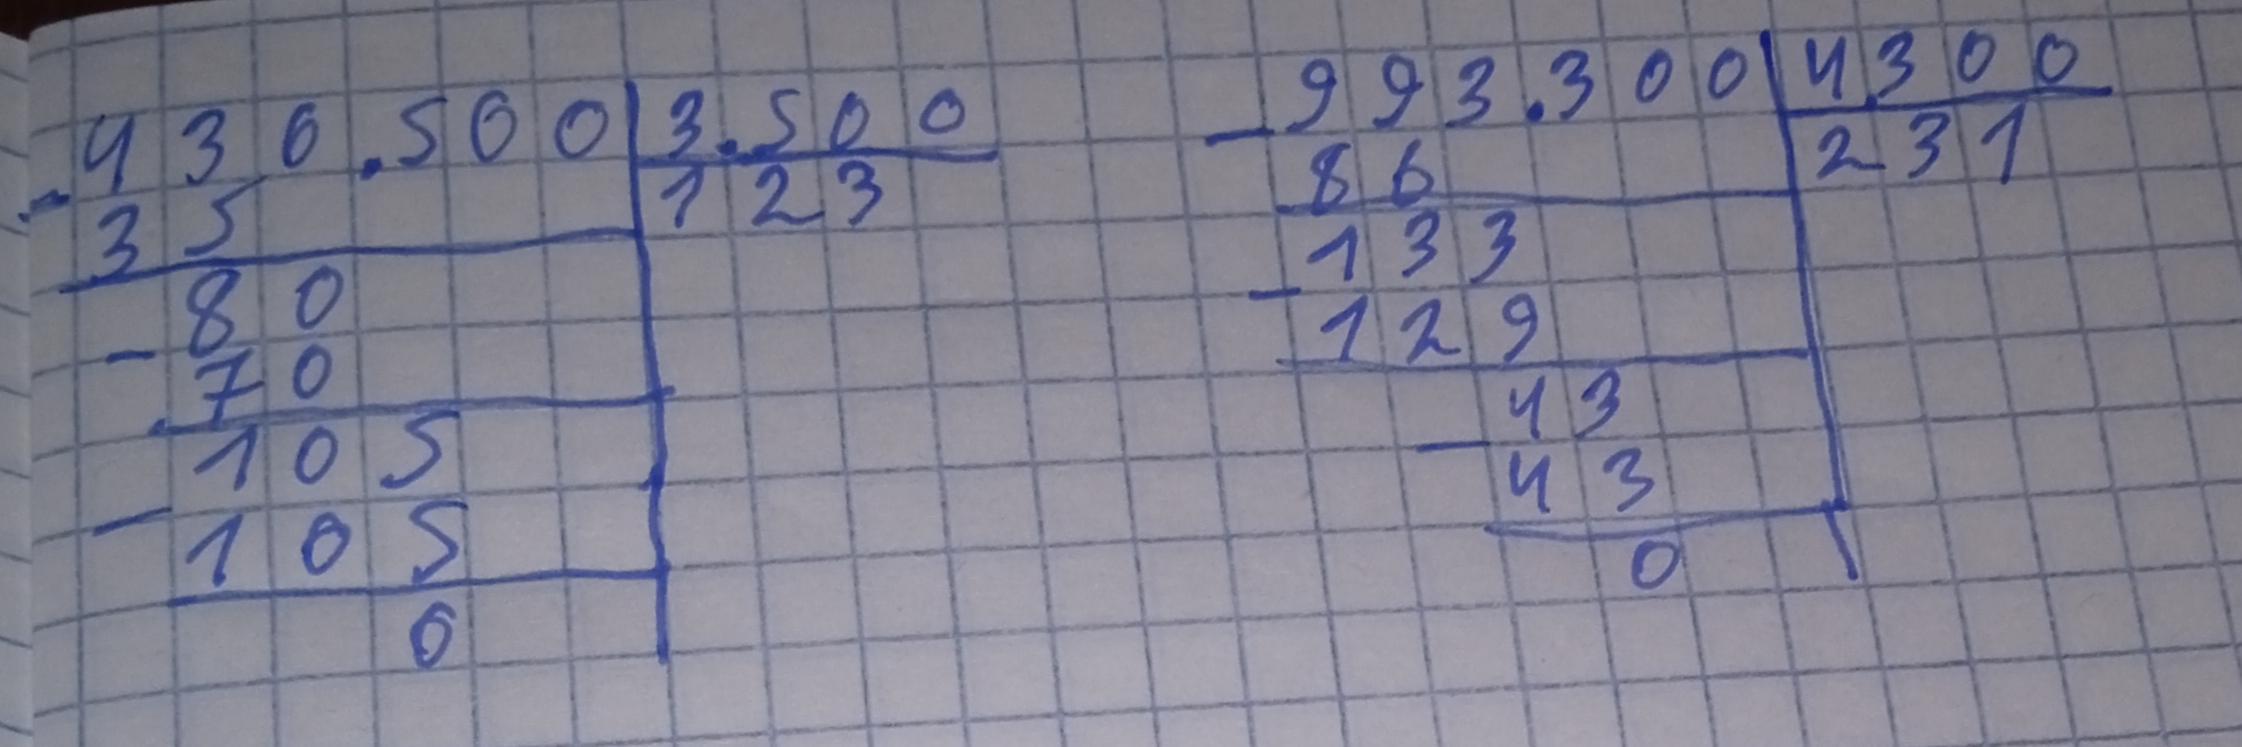 - 430.500 | 3.500
35 | 123
- 80
70
- 105
105
0
- 993.300 | 4.300
86 | 231
- 133
129
- 43
43
0